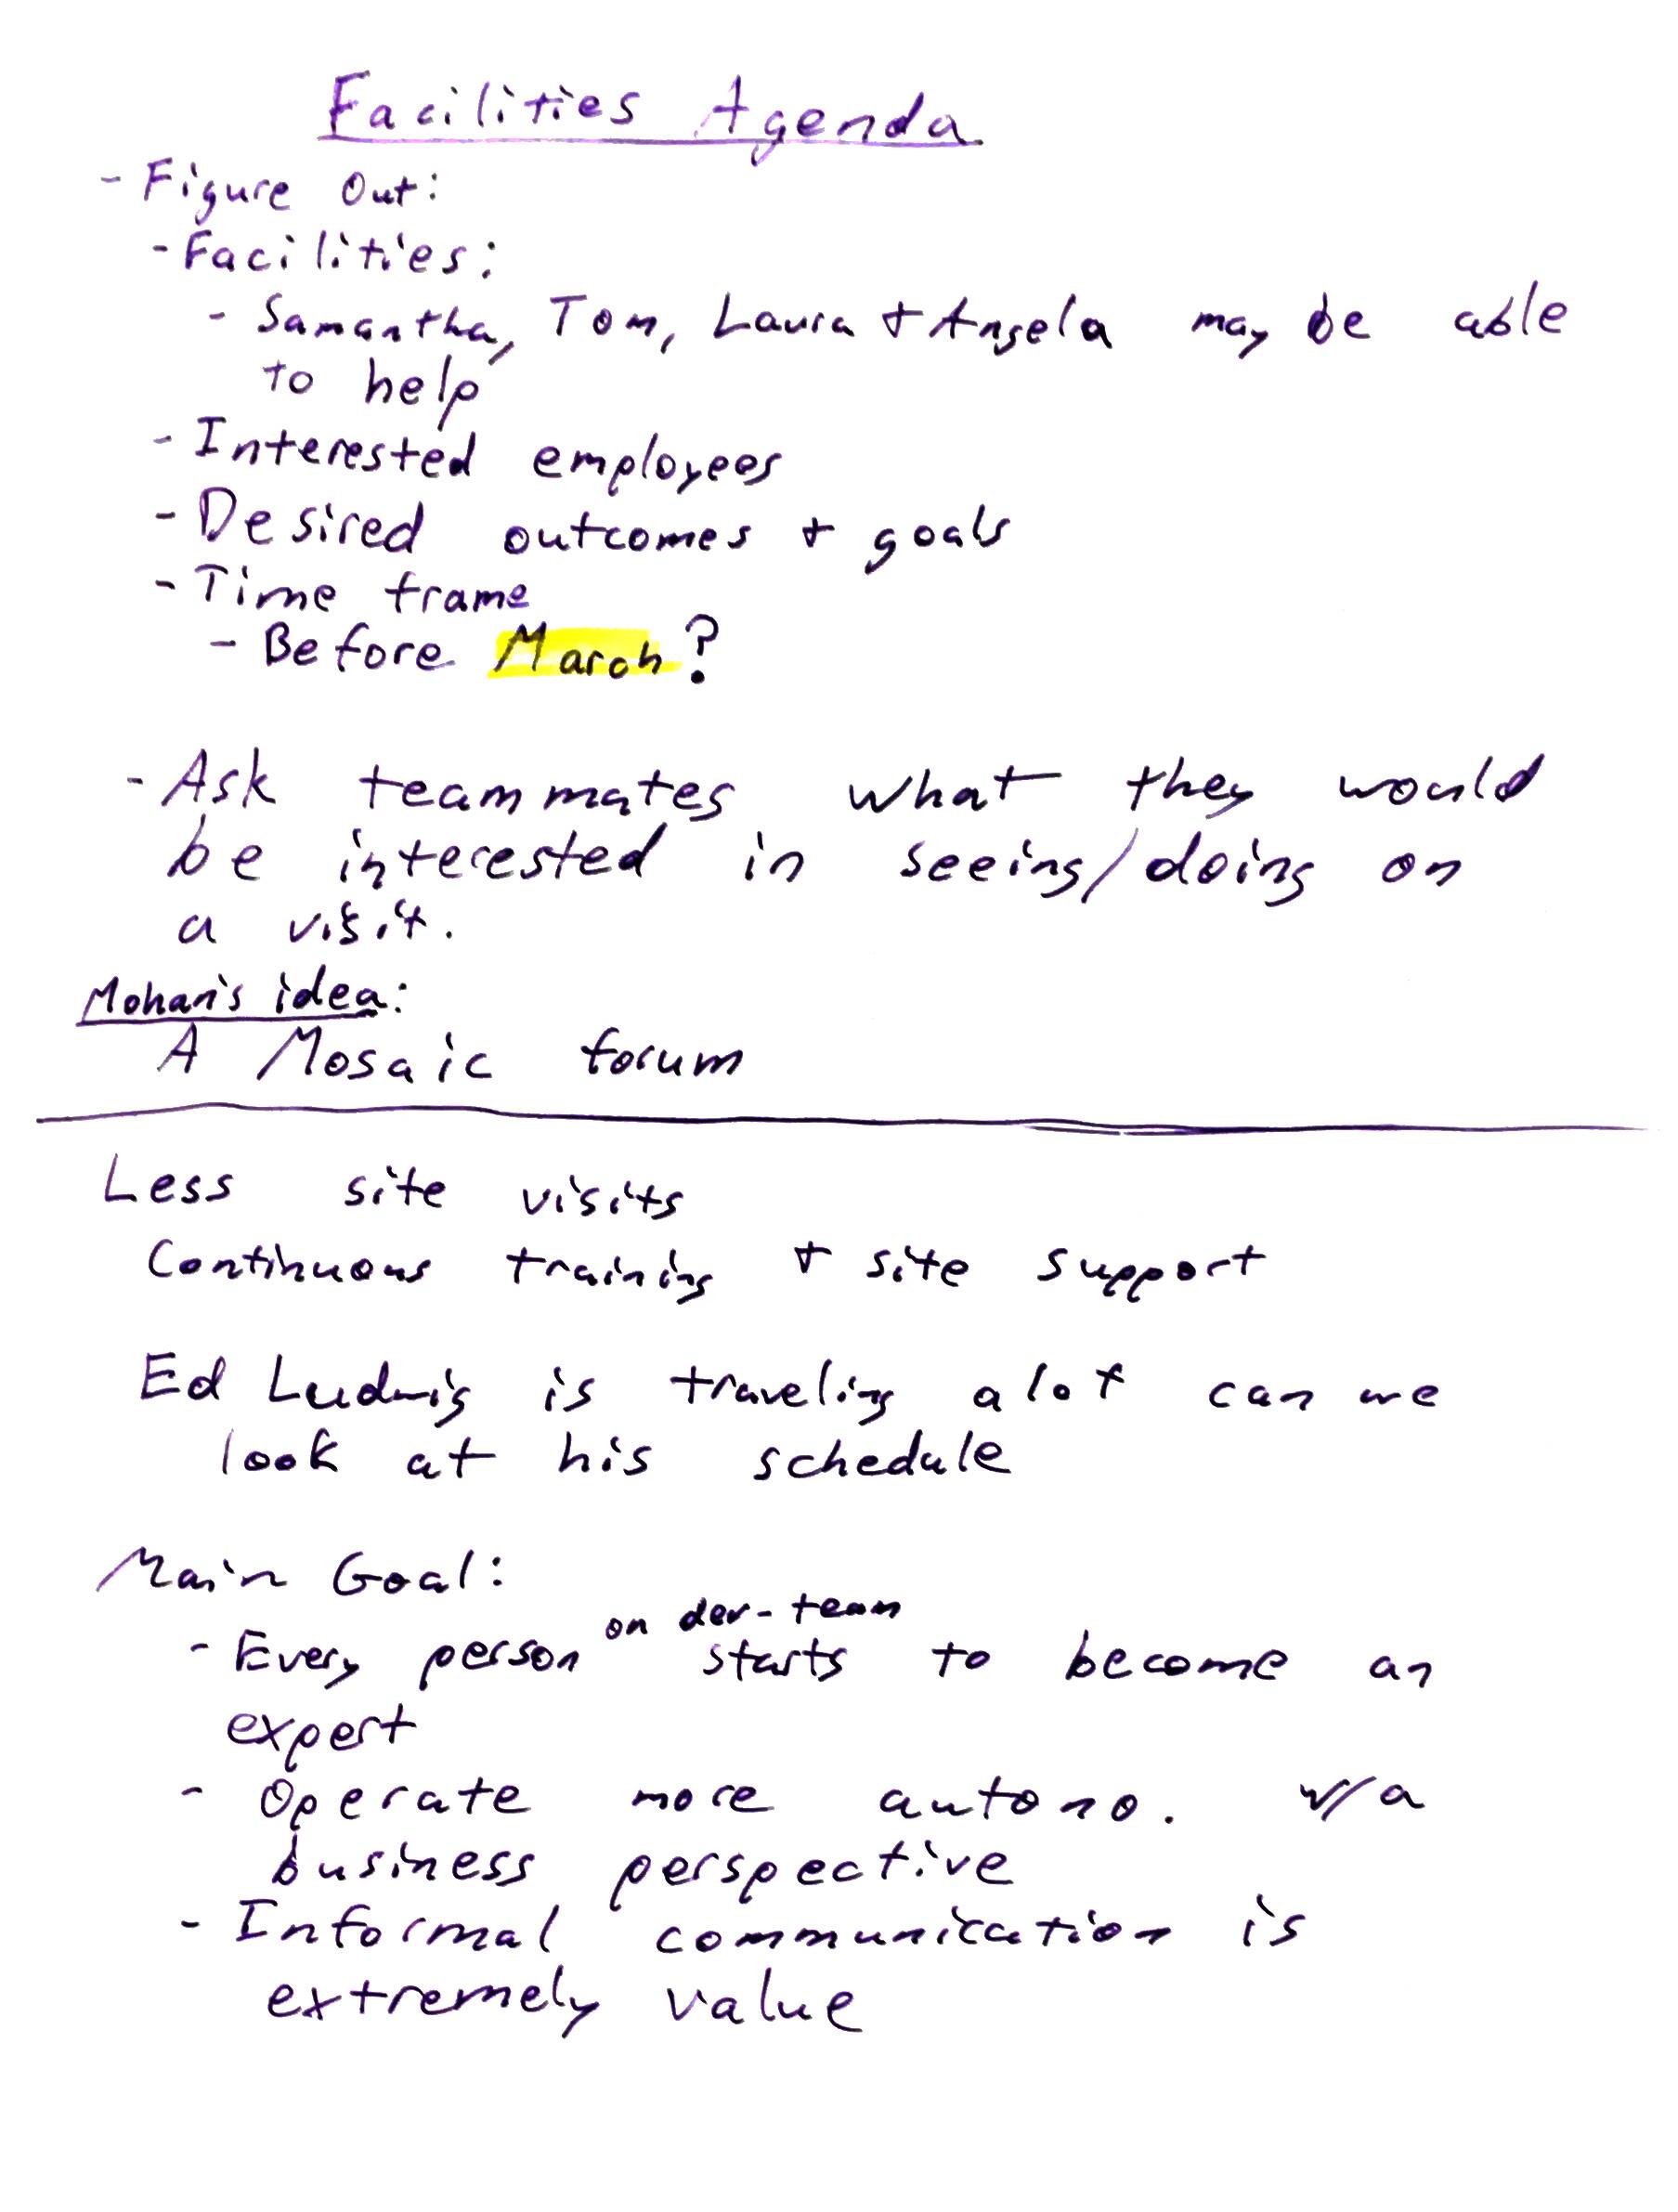 Facilities Agenda
- Figure Out:
- Facilities:
- Samantha, Tom, Laura + Angela may be able
to help
- Interested employees
- Desired outcomes + goals
- Time frame
- Before March?
- Ask teammates what they would
be interested in seeing/doing on
a visit.
Mohan's idea:
A Mosaic forum
Less site visits
Continuous training + site support
Ed Ludwig is traveling alot can we
look at his schedule
Main Goal:
- Every person on dev-team starts to become an
expert
- Operate more autono. w/a
business perspective
- Informal communication is
extremely value